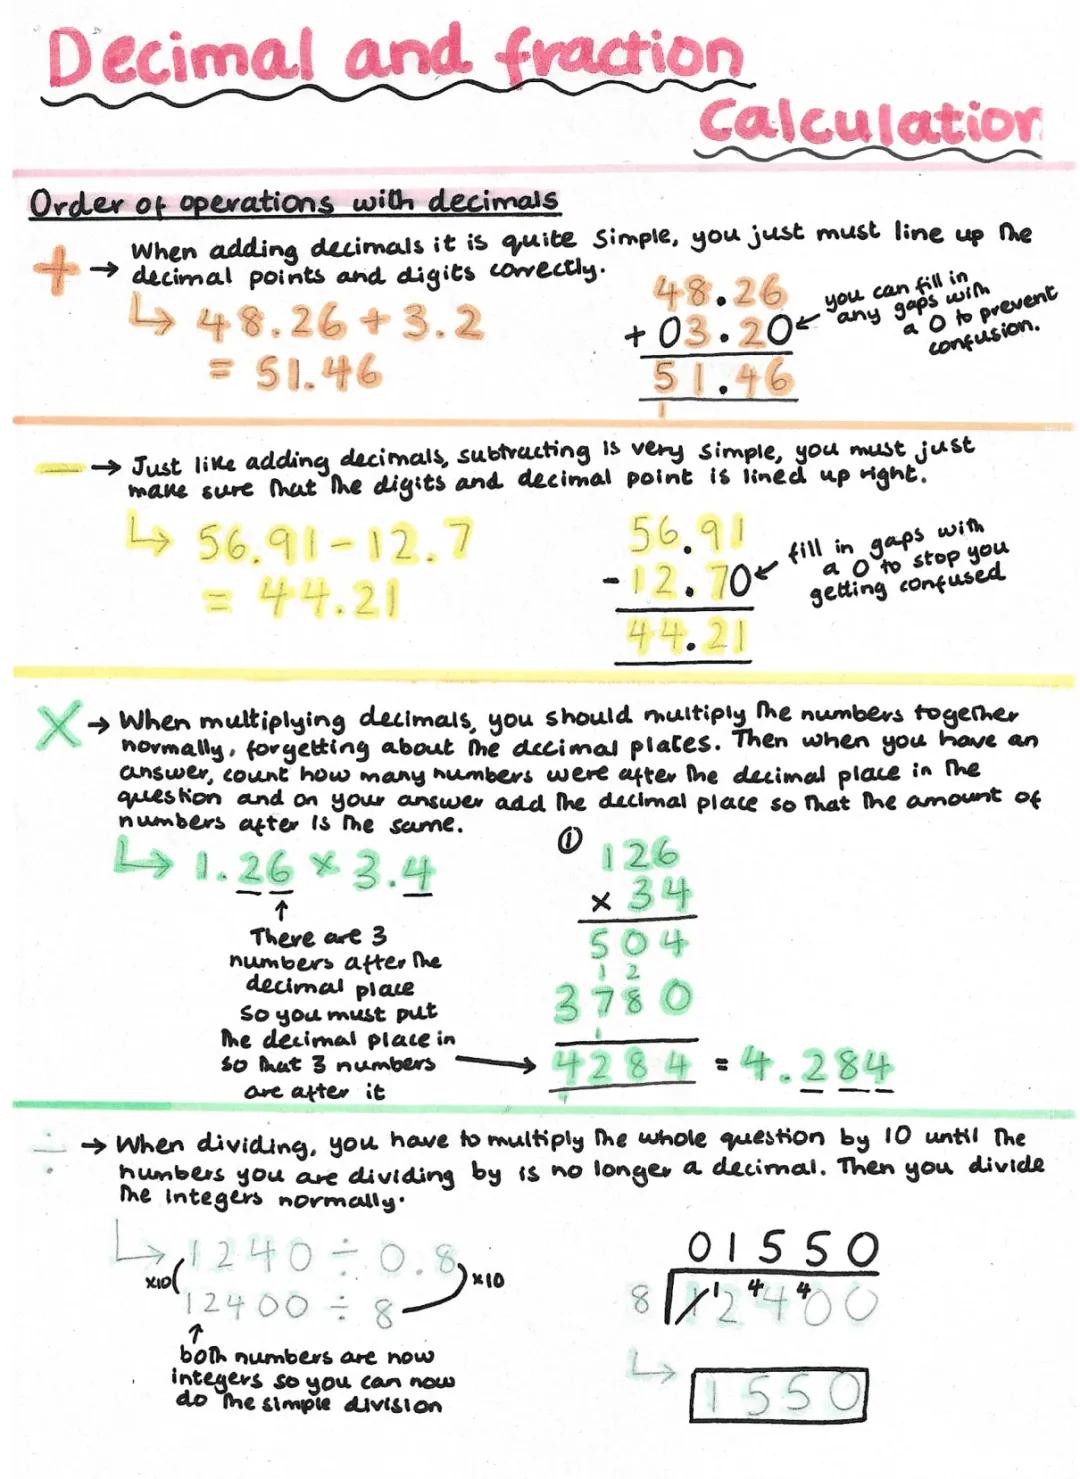 Decimal and fraction
Calculation
Order of operations with decimals
+ → When adding decimals it is quite simple, you just must line up the
decimal points and digits correctly.
↳ 48.26 + 3.2
= 51.46
48.26
+ 03.20
51.46
1
you can fill in
any gaps with
a 0 to prevent
confusion.
− → Just like adding decimals, subtracting is very simple, you must just
make sure that the digits and decimal point is lined up right.
↳ 56.91 - 12.7
= 44.21
56.91
- 12.70
44.21
fill in gaps with
a 0 to stop you
getting confused
× → When multiplying decimals, you should multiply the numbers together
normally, forgetting about the decimal places. Then when you have an
answer, count how many numbers were after the decimal place in the
question and on your answer add the decimal place so that the amount of
numbers after is the same.
↳ 1.26 × 3.4
↑
There are 3
numbers after the
decimal place
so you must put
the decimal place in
so that 3 numbers
are after it
①
126
× 34
504
1 2
3780
1
→ 4284 = 4.284
1
÷ → When dividing, you have to multiply the whole question by 10 until the
numbers you are dividing by is no longer a decimal. Then you divide
the integers normally.
↳ 1240 ÷ 0.8
x10 x10
12400 ÷ 8
↑
both numbers are now
integers so you can now
do the simple division
01550
8 1 ¹2 ⁴4 ⁴0 0
↳ 1550